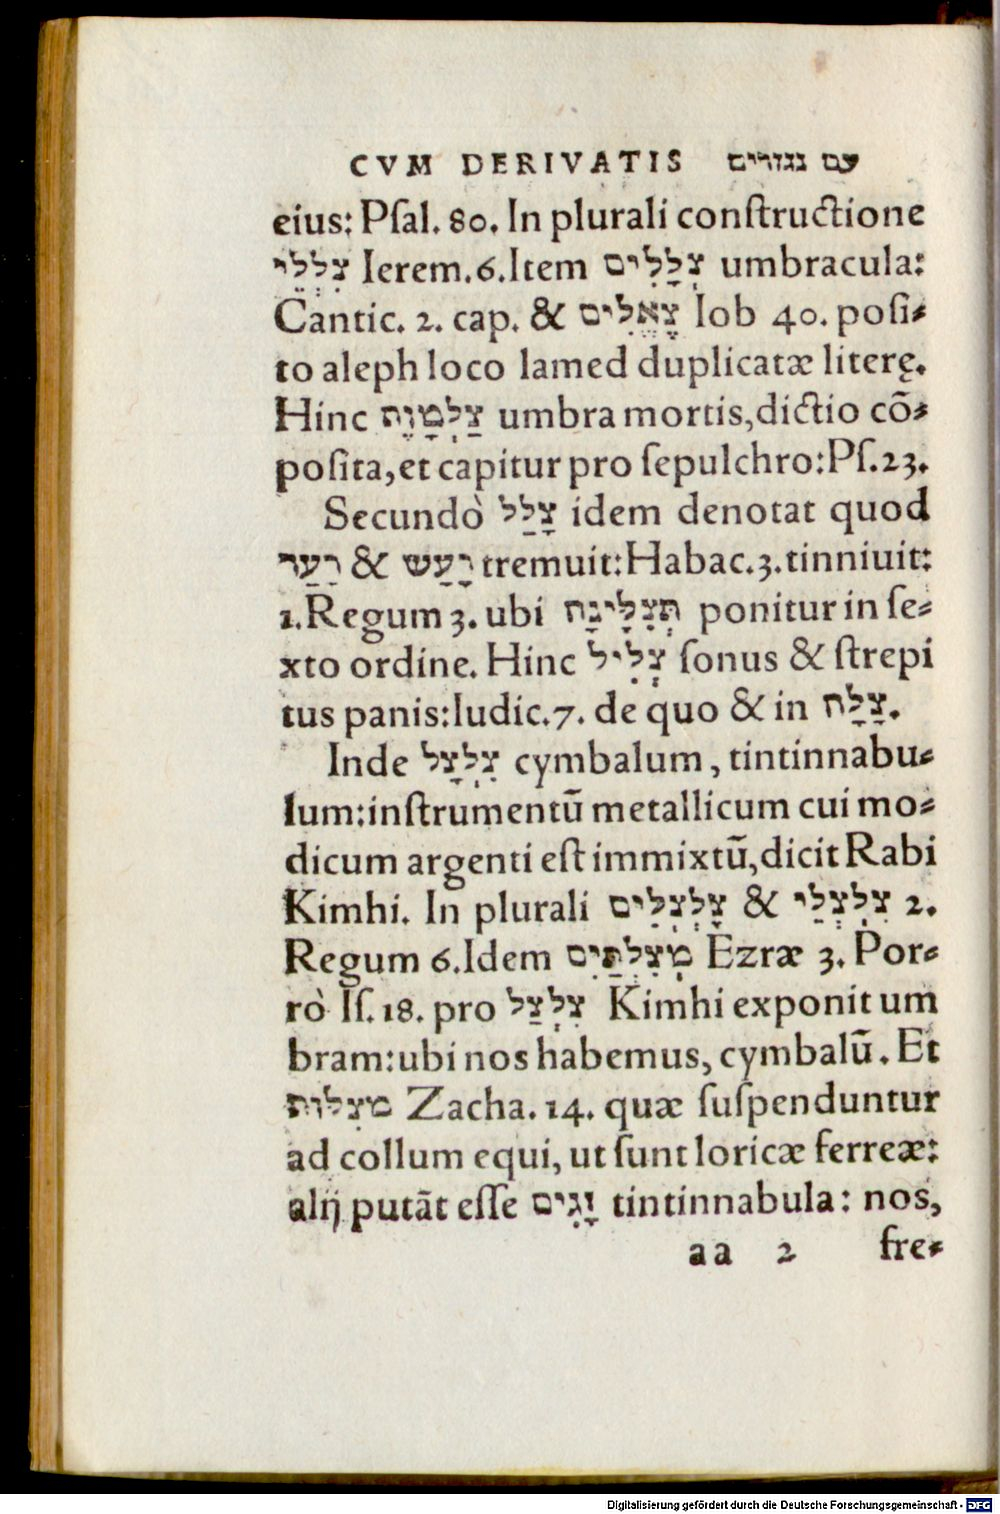 CVM DERIVATIS עם נגזרים
eius: Pſal. 80. In plurali conſtructione
צִלְלֵי Ierem. 6. Item צְלָלִים umbracula:
Cantic. 2. cap. & צֶאֱלִים Iob 40. poſi⸗
to aleph loco lamed duplicatæ literę.
Hinc צַלְמָוֶת umbra mortis, dictio cō⸗
poſita, et capitur pro ſepulchro: Pſ. 23.
Secundò צָלַל idem denotat quod
רָעַשׁ & רָעַד tremuit: Habac. 3. tinniuit:
1. Regum 3. ubi תְּצַלֶּינָה ponitur in ſe⸗
xto ordine. Hinc צְלִיל ſonus & ſtrepi
tus panis: Iudic. 7. de quo & in צָלָה.
Inde צִלְצָל cymbalum, tintinnabu⸗
lum: inſtrumentū metallicum cui mo⸗
dicum argenti eſt immixtū, dicit Rabi
Kimhi. In plurali צֶלְצְלִים & צִלְצְלֵי 2.
Regum 6. Idem מְצִלְתַּיִם Ezræ 3. Por⸗
rò Iſ. 18. pro צִלְצַל Kimhi exponit um
bram: ubi nos habemus, cymbalū. Et
מצִלות Zacha. 14. quæ ſuſpenduntur
ad collum equi, ut ſunt loricæ ferreæ:
alij putāt eſſe זָגִים tintinnabula: nos,
aa 2 fre⸗
Digitalisierung gefördert durch die Deutsche Forschungsgemeinschaft - DFG